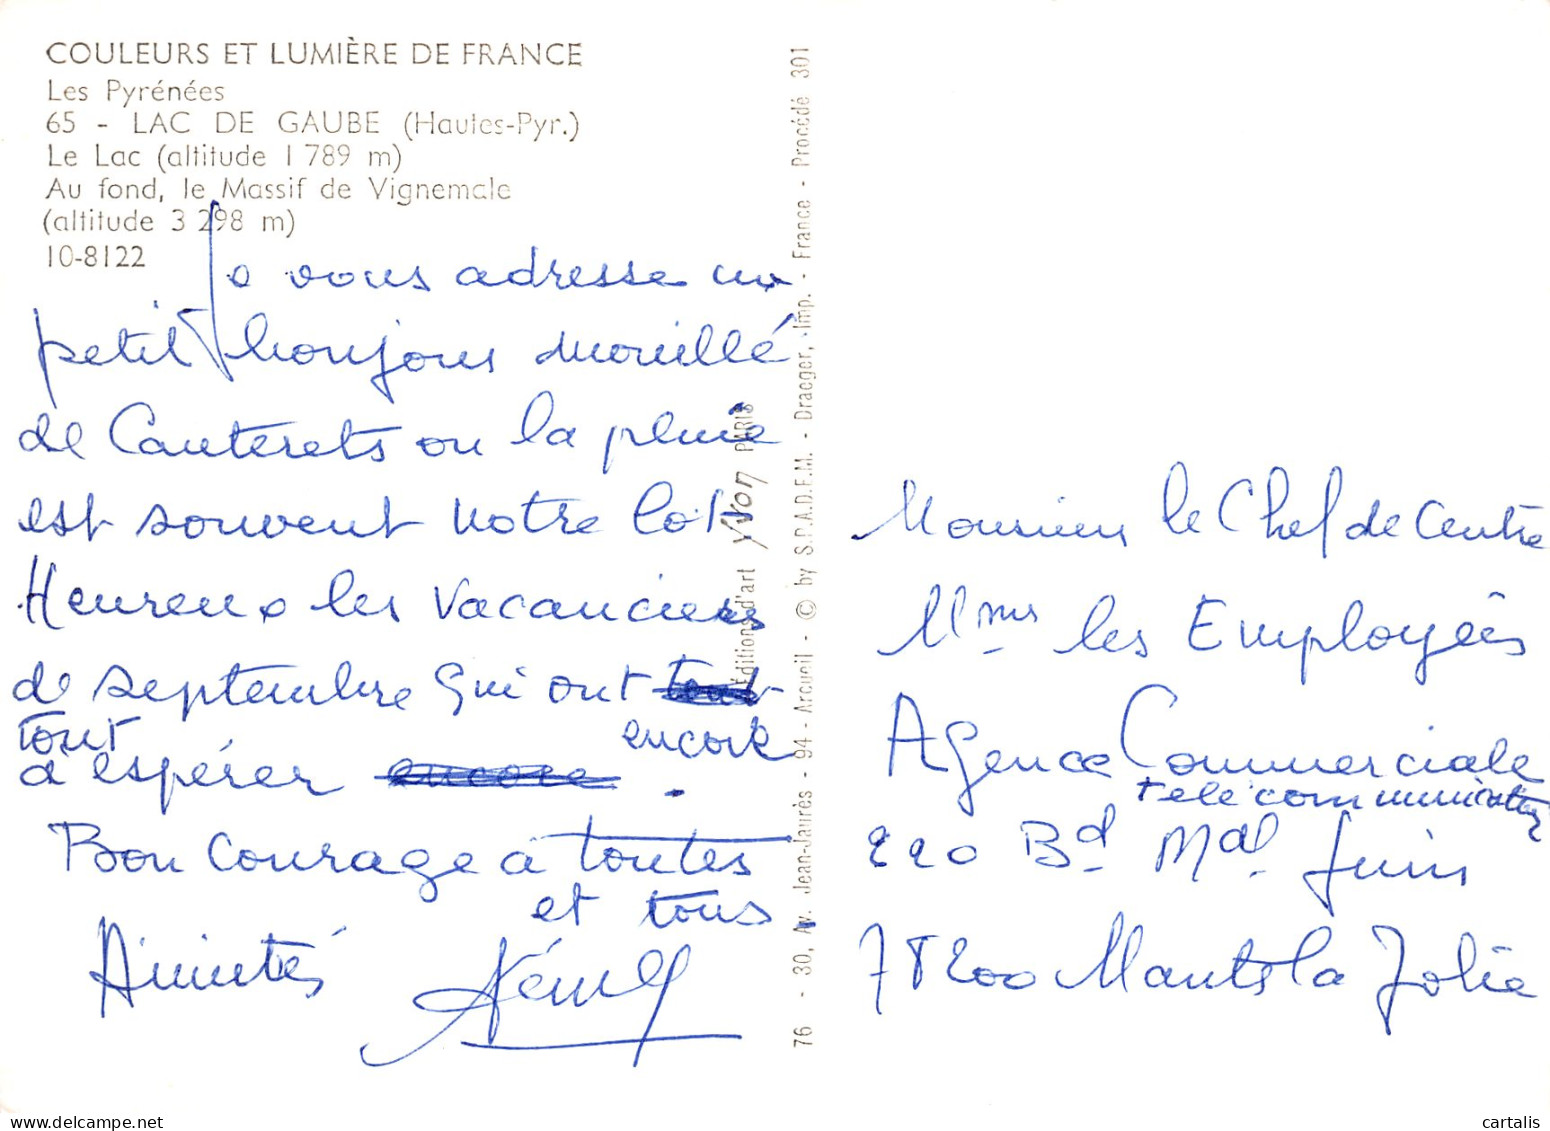 COULEURS ET LUMIÈRE DE FRANCE
Les Pyrénées
65 - LAC DE GAUBE (Hautes-Pyr.)
Le Lac (altitude 1 789 m)
Au fond, le Massif de Vignemale
(altitude 3 298 m)
10-8122
Je vous adresse un
petit bonjour mouillé
de Cauterets ou la pluie
est souvent notre lot
Heureux les vacanciers
de septembre qui ont tout
tout encore
à espérer encore .
Bon courage à toutes
et tous
Amitiés
Éditions d'art YVON PARIS
76 - 30, Av. Jean-Jaurès - 94 - Arcueil - © by S.P.A.D.E.M. - Draeger, Imp. - France - Procédé 301
Monsieur le Chef de Centre
Mmes les Employées
Agence Commerciale
télécommunication
220 Bd Mal Juin
78200 Mantes la Jolie
cartalis